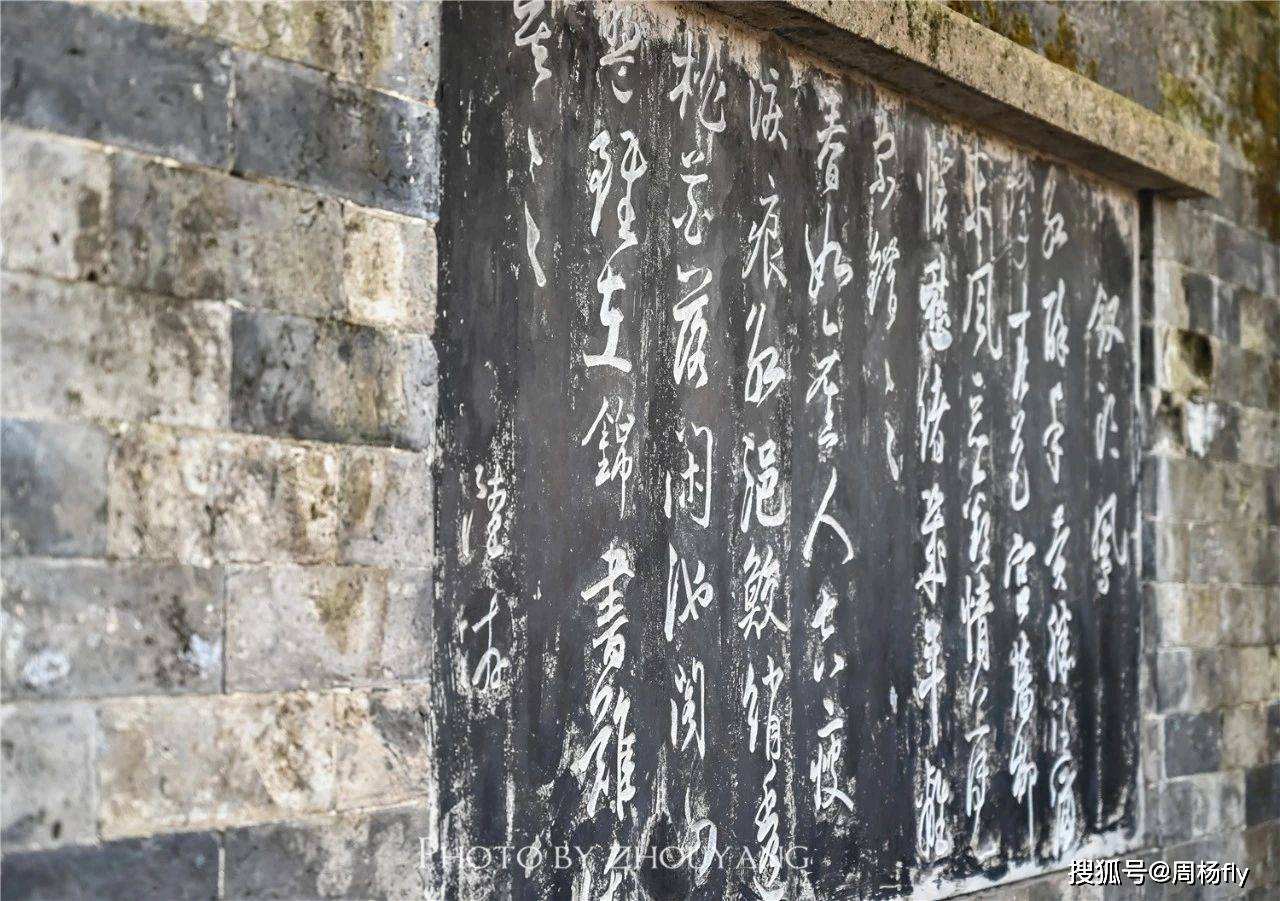 釵頭鳳
紅酥手黃縢酒滿
城春色宮牆柳
東風惡歡情薄一
懷愁緒幾年離
索錯〻〻
春如舊人空瘦
淚痕紅浥鮫綃透
桃花落閑池閣山
盟雖在錦書難託
莫〻〻
陸游
PHOTO BY ZHOUYANG
搜狐号@周杨fly